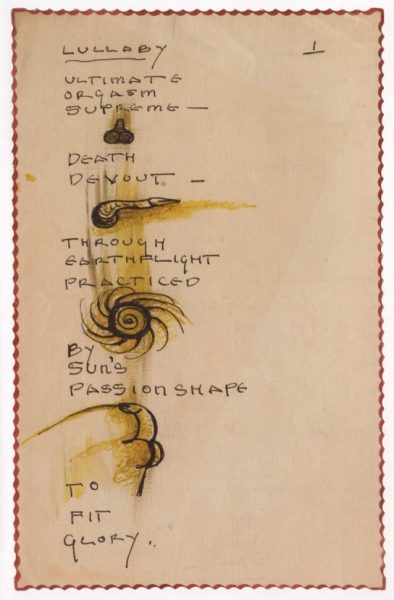 LULLABY 1
ULTIMATE
ORGASM
SUPREME —
DEATH
DEVOUT —
THROUGH
EARTHFLIGHT
PRACTICED
BY
SUN'S
PASSIONSHAPE
TO
FIT
GLORY..